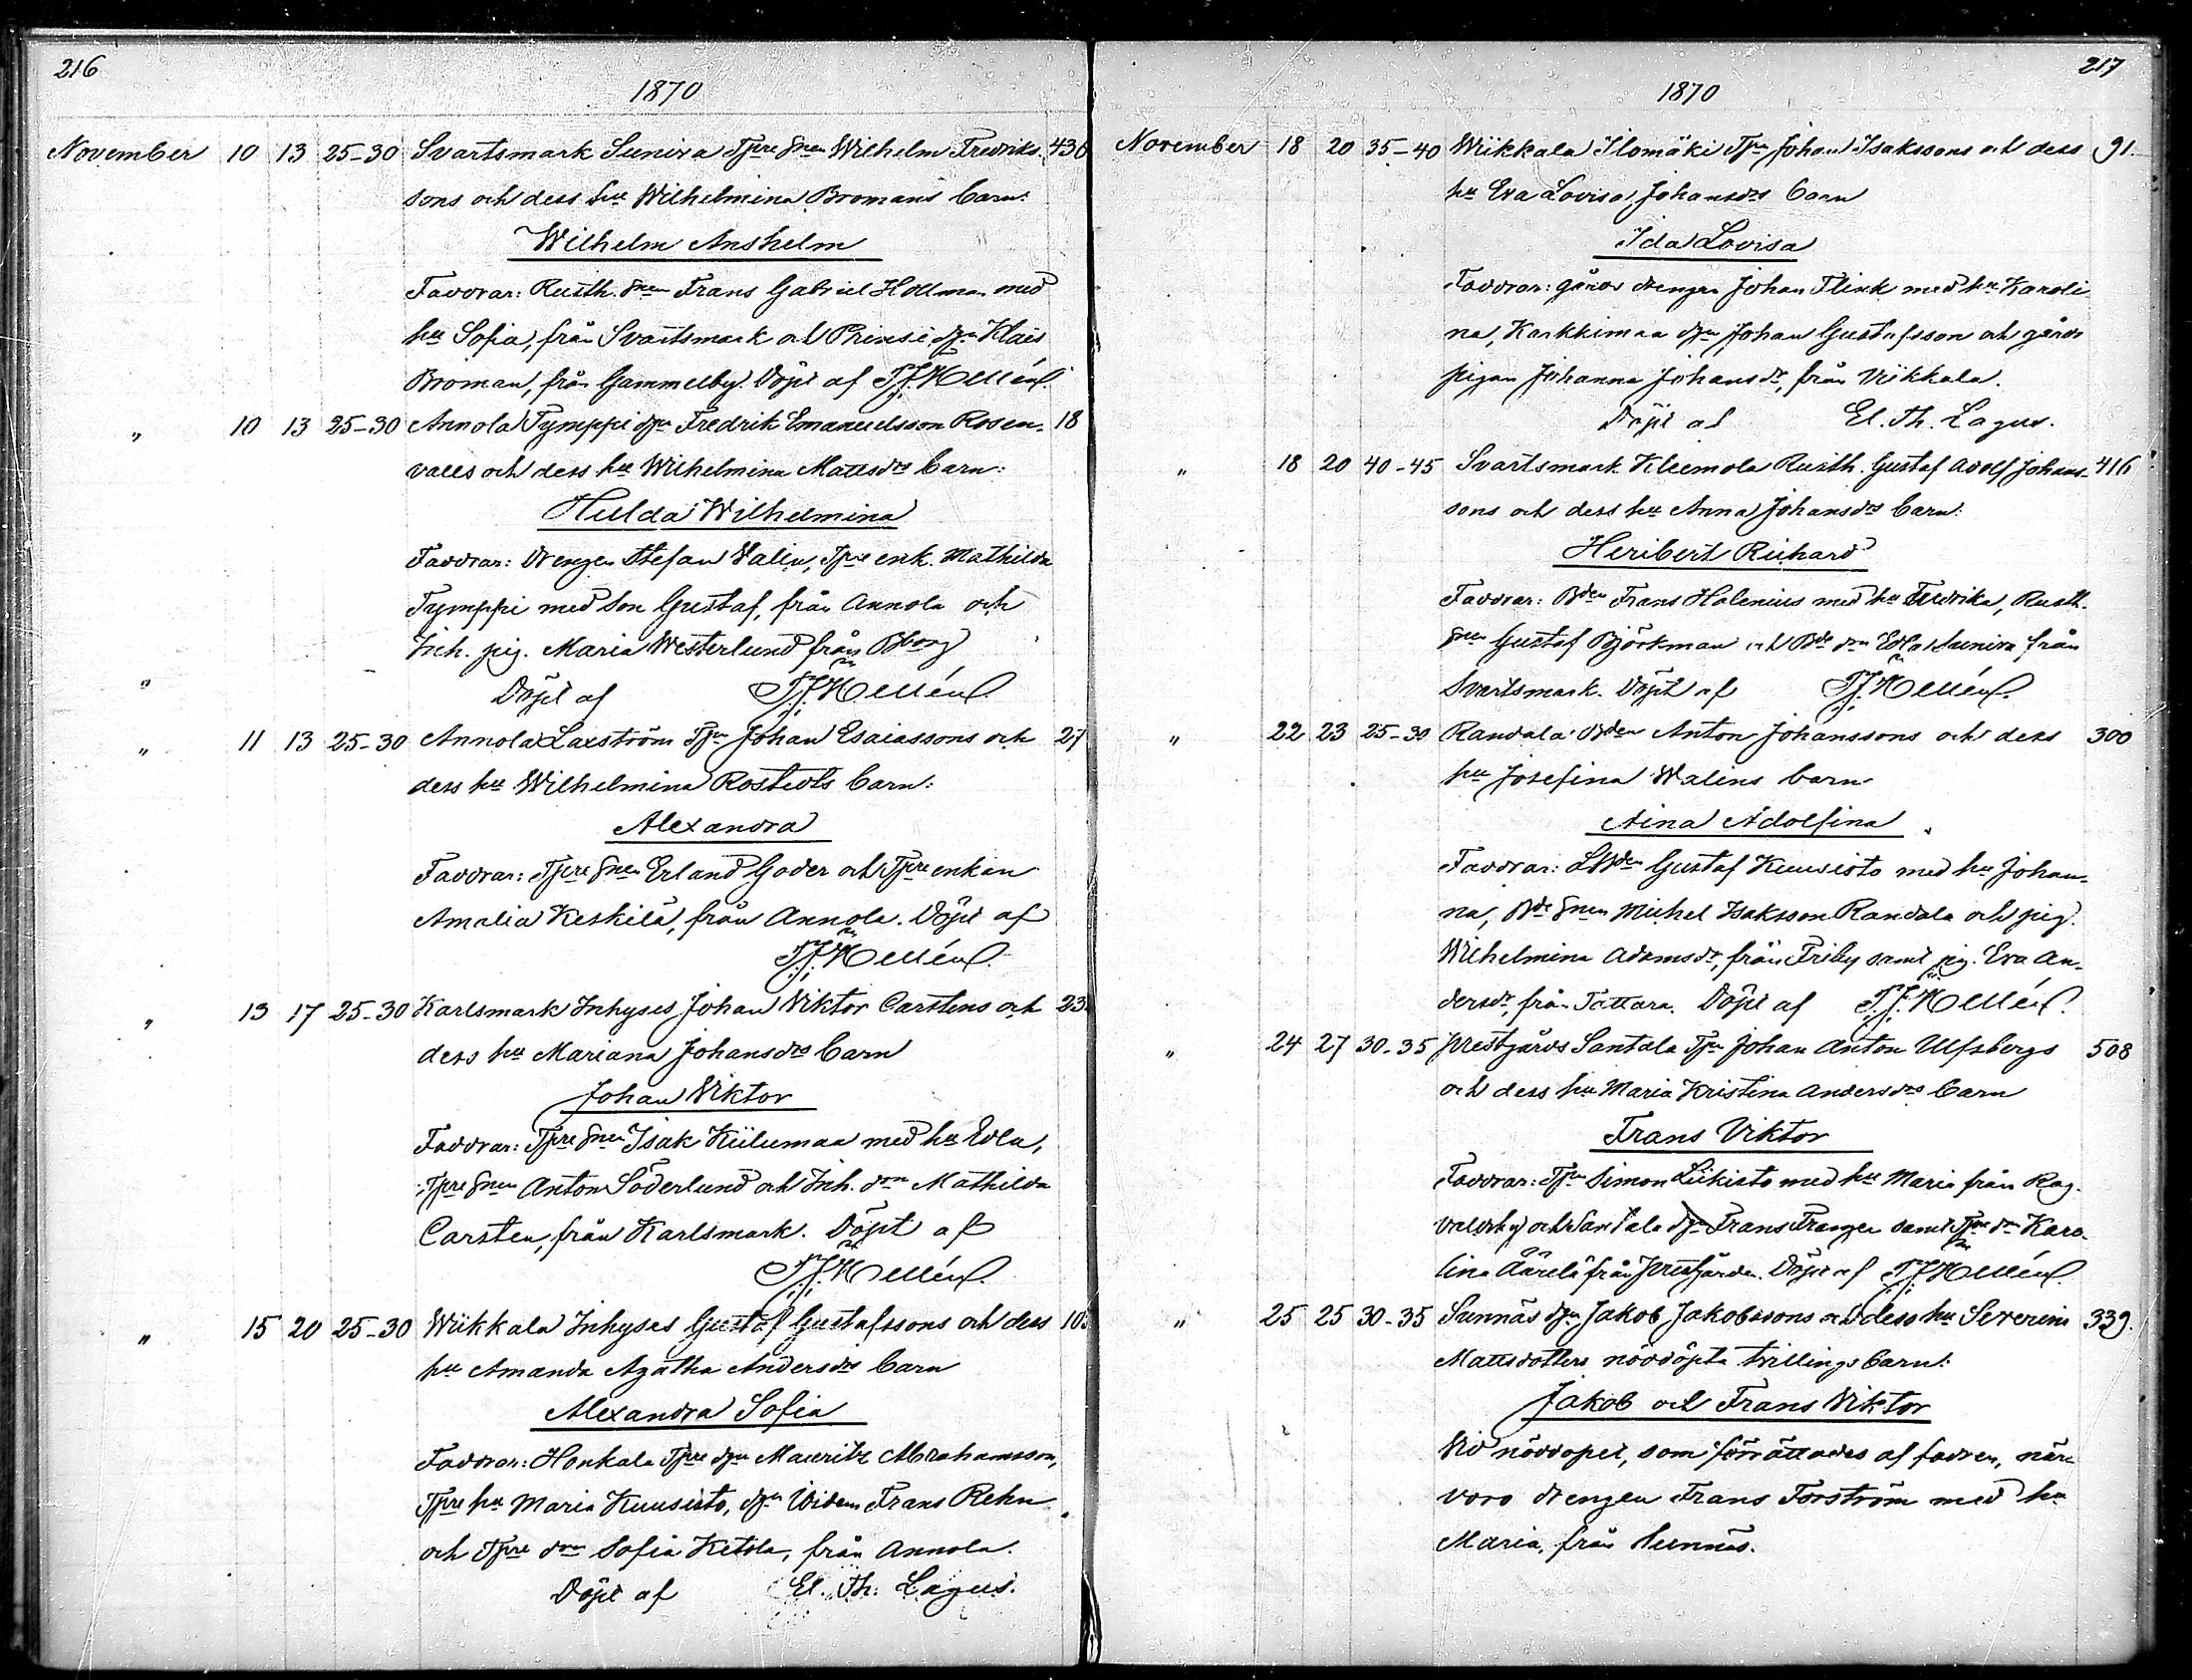 216
1870
November 10 13 25-30 Svartsmark Sunira Tjre Snen Wilhelm Fredriks- 430
sons och dess hu Wilhelmina Bromans barn:
Wilhelm Anshelm
Faddrar: Rusth. Snen Frans Gabriel Hollman med
hu Sofia, från Svartsmark och Prinsi djn Klais
Broman, från Gammelby. Döpt af T.J. Hellén.
" 10 13 25-30 Annola Tymppi djn Fredrik Emanuelsson Rosen- 18
valls och dess hu Wilhelmina Mattsdrs barn:
Hulda Wilhelmina
Faddrar: Drengen Stefan Walin, Tjre enk. Mathilda
Tymppi med son Gustaf, från Annola och
Inh. pig. Maria Westerlund från Bborg
" Döpt af T.J. Hellén.
" 11 13 25-30 Annola Laxström Tjn Johan Esaiassons och 27
dess hu Wilhelmina Rostedts barn:
Alexandra
Faddrar: Tjre Snen Erland Goder och Tjre enkan
Amalia Keskilä, från Annola. Döpt af
T.J. Hellén.
" 13 17 25-30 Karlsmark Inhyses Johan Viktor Carstens och 23
dess hu Mariana Johansdrs barn
Johan Viktor
Faddrar: Tjre Sn Isak Kiilumaa med hu Edla,
Tjre Snen Anton Söderlund och Inh. drn Mathilda
Carsten, från Karlsmark. Döpt af
T.J. Hellén.
" 15 20 25-30 Wiikkala Inhyses Gustaf Gustafssons och dess 10
hu Amanda Agatha Andersdrs barn
Alexandra Sofia
Faddrar: Honkala Tjre djn Mauritz Abrahamsson,
Tjre hu Maria Kuusisto, djn Widem Frans Rehn
och Tjre drn Sofia Ketola, från Annola.
Döpt af El. Th. Lagus.
217
1870
November 18 20 35-40 Wiikkala Ilomäki Tjn Johan Isakssons och dess 91.
hu Eva Lovisa Johansdrs barn
Ida Lovisa
Faddrar: gårds drengen Johan Flink med hu Karoli-
na, Karkkimaa djn Johan Gustafsson och gårds
pigan Johanna Johansdr, från Viikkala.
Döpt af El. Th. Lagus.
" 18 20 40-45 Svartsmark Kleemola Rusth. Gustaf Adolf Johans- 416
sons och dess hu Anna Johansdrs barn:
Heribert Richard
Faddrar: Bden Frans Holenius med hu Fredrika, Rusth.
Snen Gustaf Björkman och Bde drn Edla Sunira från
Svartsmark. Döpt af T.J. Hellén.
" 22 23 25-30 Randala Bden Anton Johanssons och dess 300
hu Josefina Walins barn
Aina Adolfina
Faddrar: LBden Gustaf Kuusisto med hu Johan-
na, Bde Snen Michel Isaksson Randala och pig.
Wilhelmina Adamsdr, från Friby samt pig. Eva An-
dersdr, från Tattara. Döpt af T.J. Hellén.
" 24 27 30-35 Prestgårds Santala Tjn Johan Anton Ulfsbergs 508
och dess hu Maria Kristina Andersdrs barn
Frans Viktor
Faddrar: Tjn Simon Liikisto med hu Maria från Rag-
valdsby och Santala djn Frans Franzen samt Tjre drn Karo-
lina Äärelä från Prestgården. Döpt af T.J. Hellén.
" 25 25 30-35 Sunnäs djn Jakob Jakobssons och dess hu Severina 339.
Mattsdotters nöddöpta tvillings barn:
Jakob och Frans Viktor
Vid nöddopet, som förrättades af fadren, när-
voro drengen Frans Forström med hu
Maria, från Sunnäs.